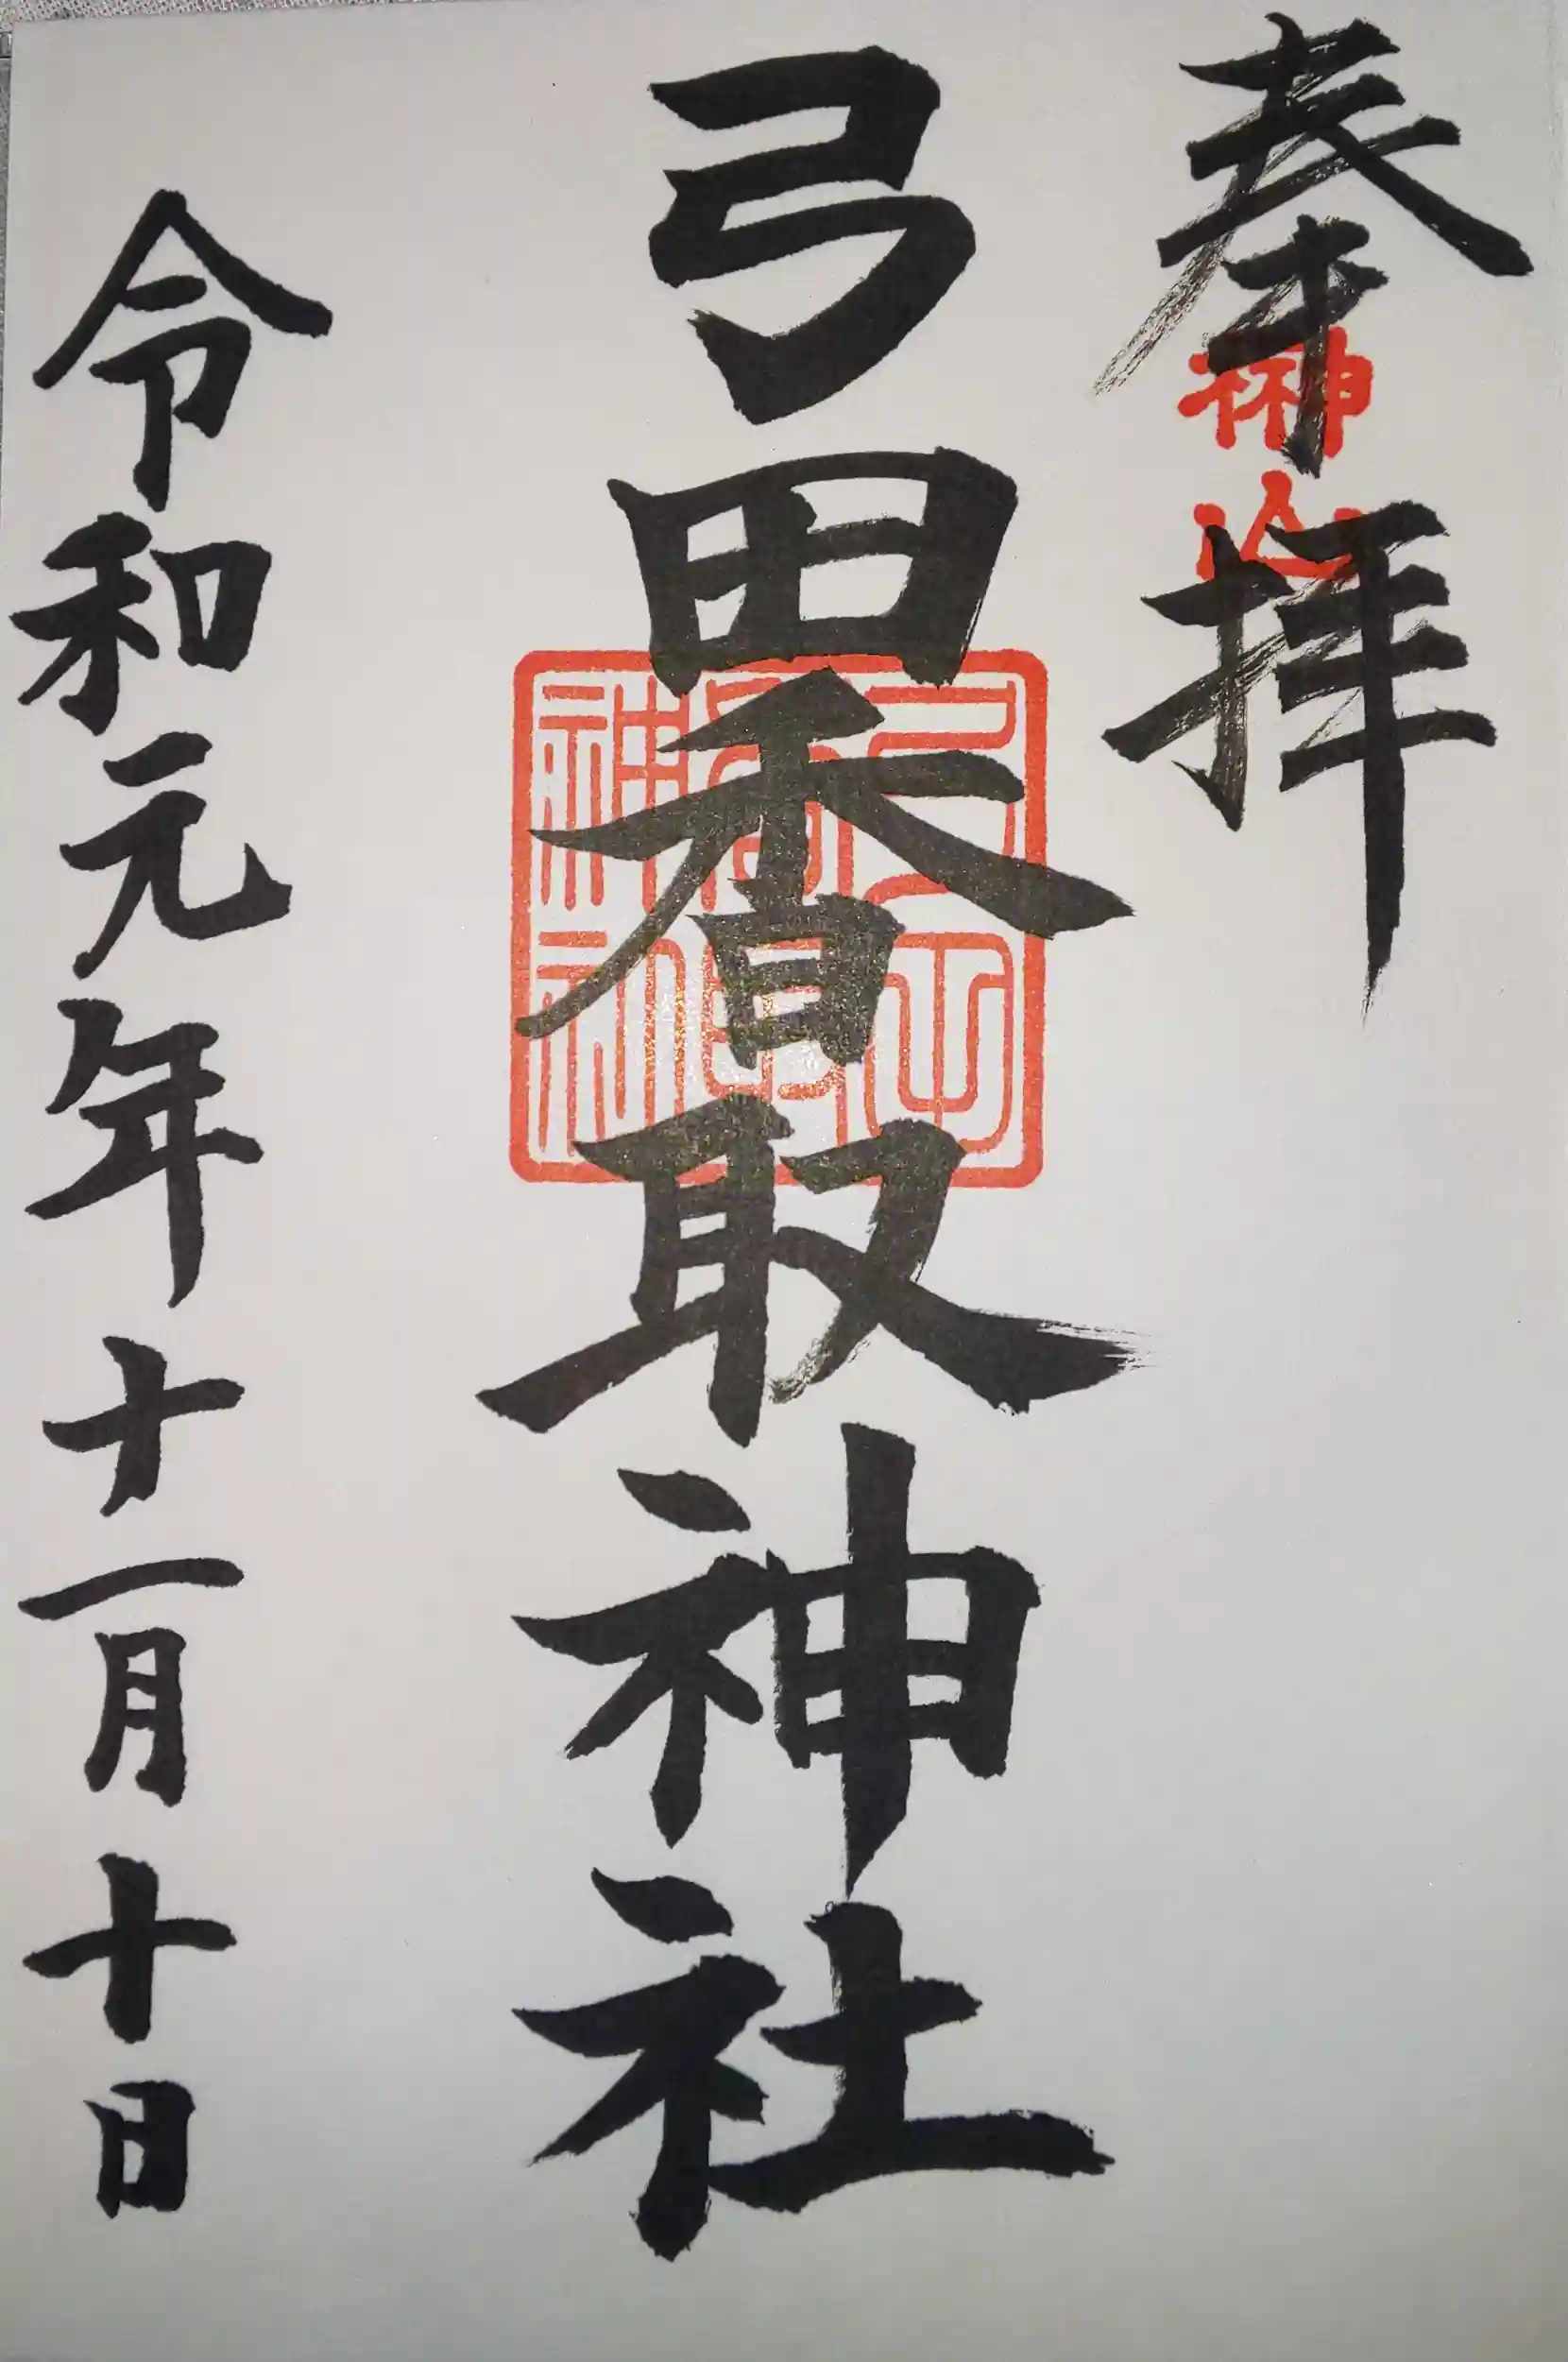 奉拝
榊山
弓田香取神社
弓田香取神社
令和元年十一月十日